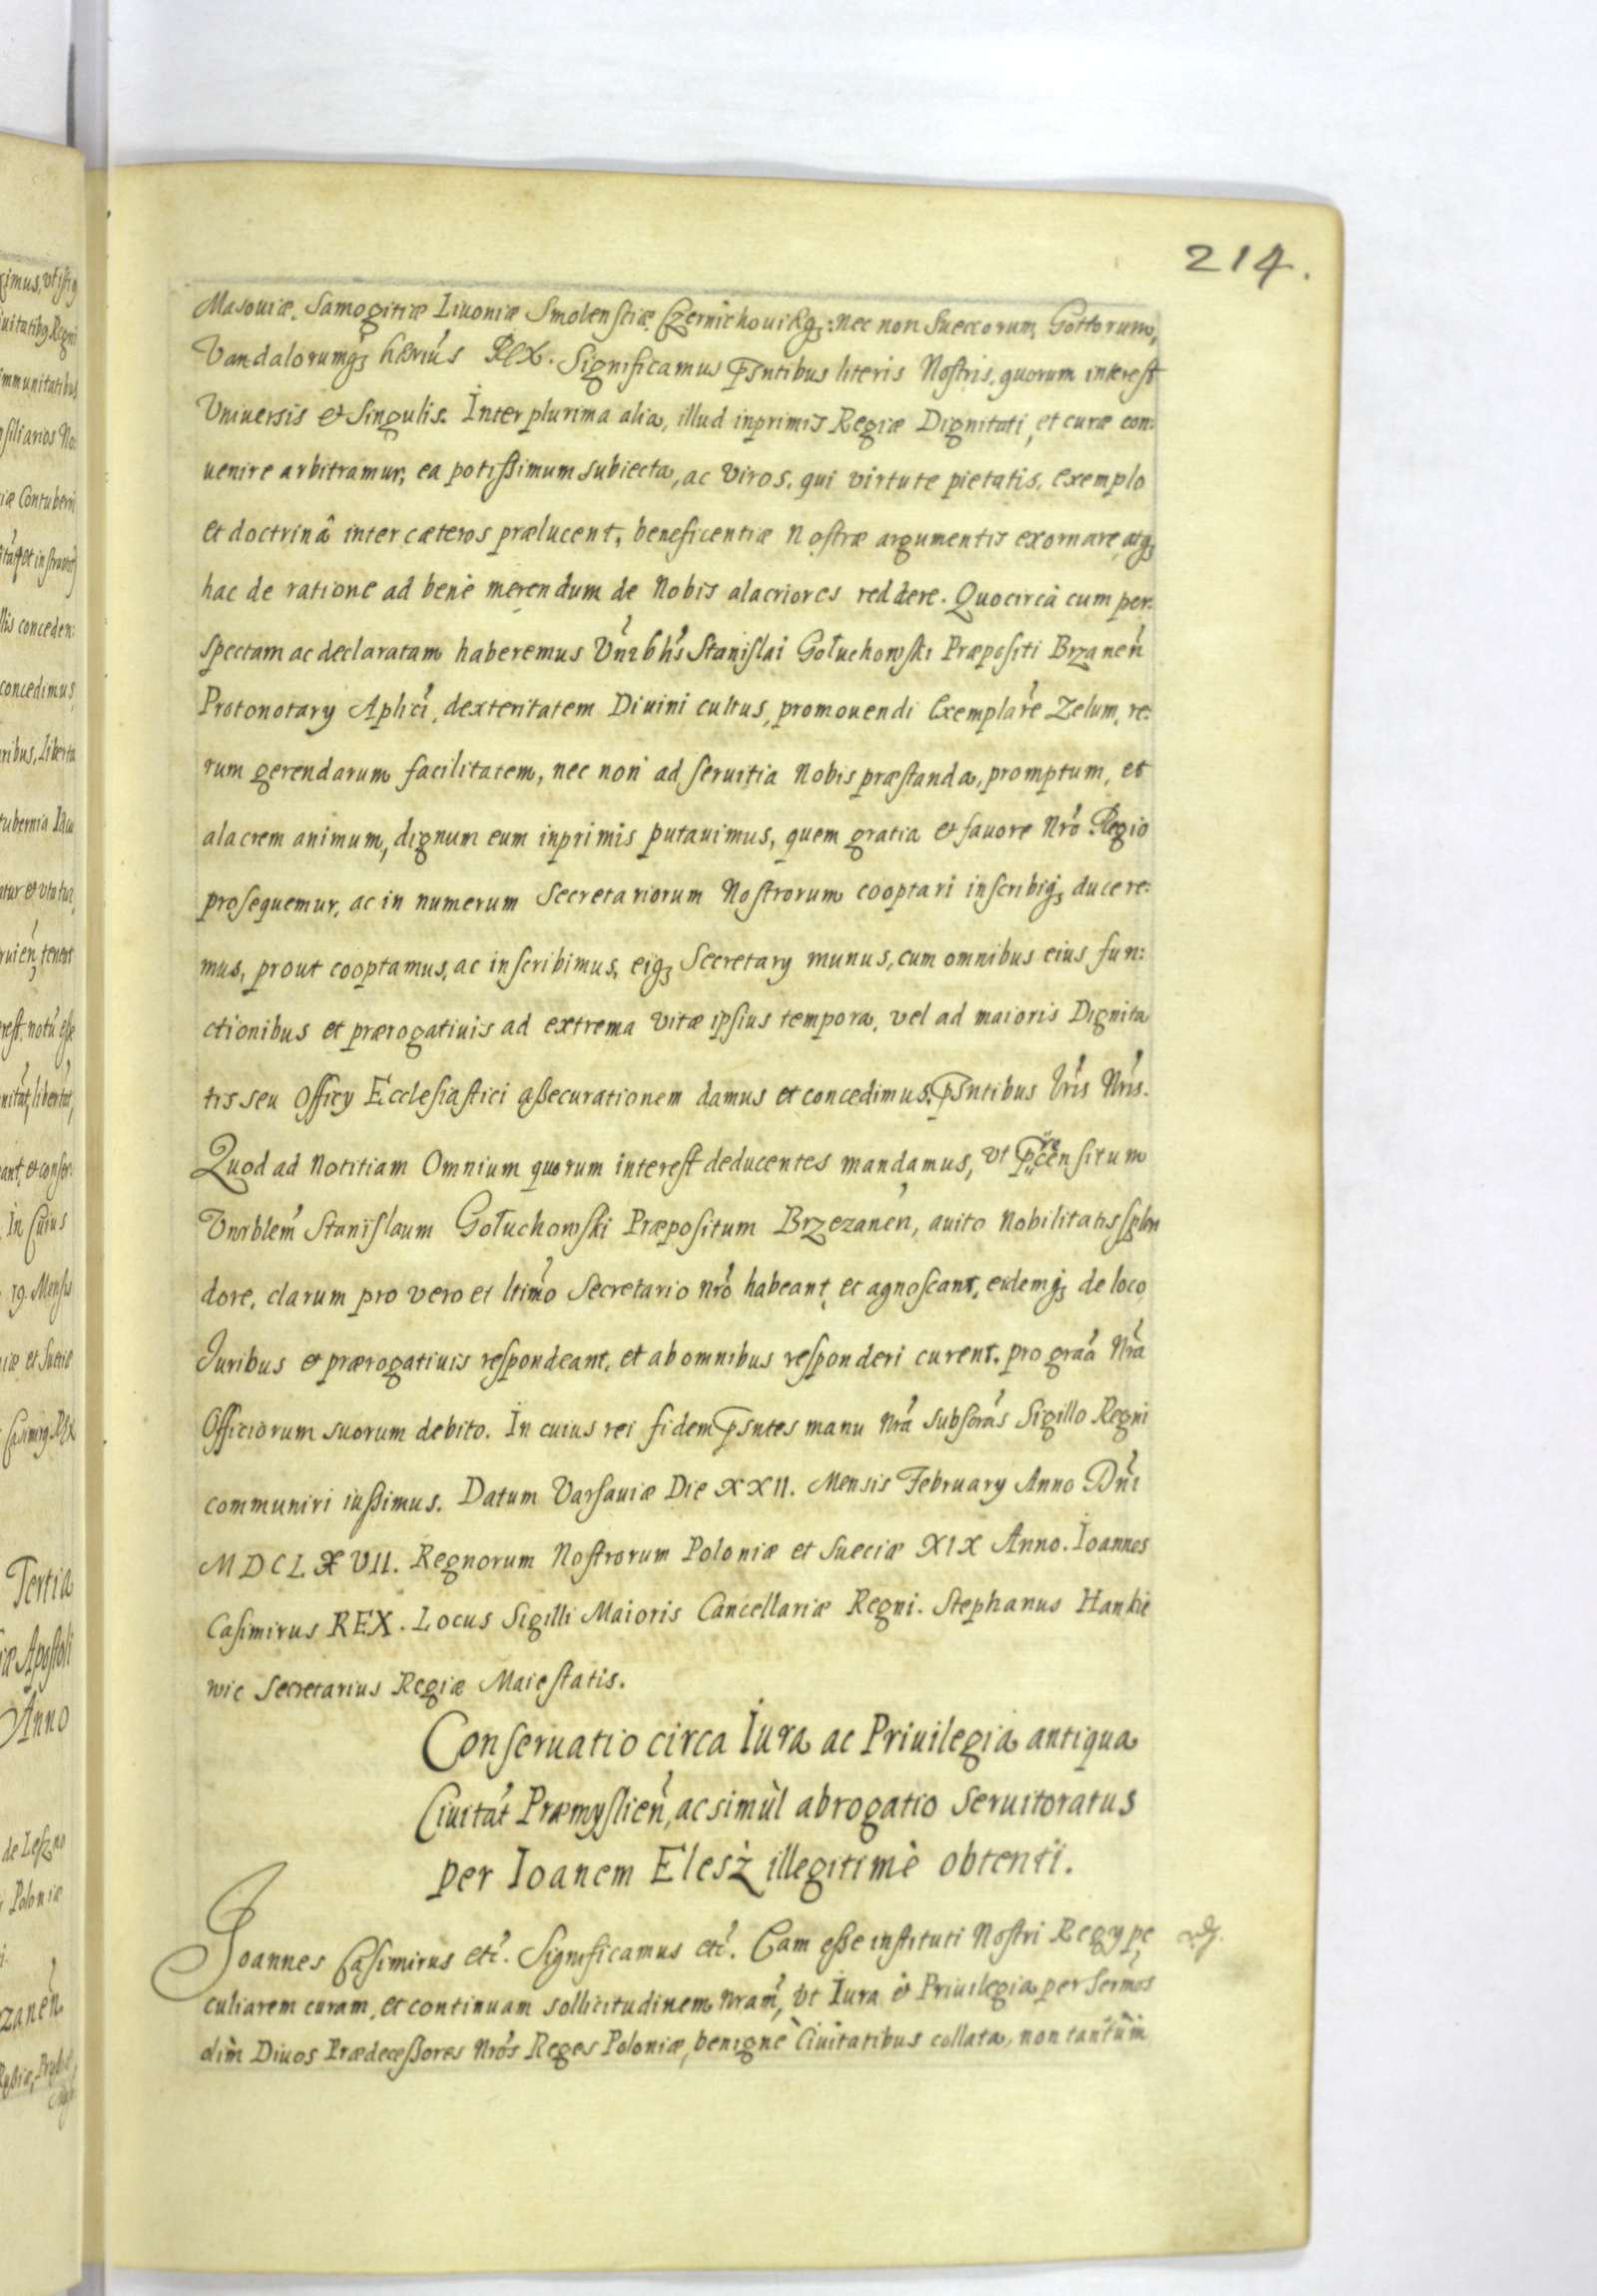 214.
Masoviæ, Samogitiæ Livoniæ Smolensciæ Czernichoviæq3: nec non Suecorum, Gottorum,
Vandalorumq3 hæriús REX. Significamus Psntibus literis Nostris, quorum interest
Vniversis et Singulis. Inter plurima alia, illud inprimis Regiæ Dignitati, et curæ con:
uenire arbitramur, ea potissimum subiecta, ac viros, qui virtute pietatis, exemplo
et doctrinâ inter cæteros prælucent, beneficentiæ Nostræ argumentis exornare, atq3
hac de ratione ad benè merendum de Nobis alacriores reddere. Quocircà cum per:
spectam ac declaratam haberemus Stanislai Gołuchowski Præpositi Brzaneń
Protonotary Aplici, dexteritatem Diuini cultus, promouendi Exemplare Zelum, re:
rum gerendarum facilitatem, nec non ad seruitia Nobis præstanda, promptum, et
alacrem animum, dignum eum inprimis putauimus, quem gratia et fauore Nró Regio
prosequemur, ac in numerum Secretariorum Nostrorum cooptari inscribiq3 ducere:
mus, prout cooptamus, ac inscribimus, eiq3 Secretary munus, cum omnibus eius fun:
ctionibus et prærogatiuis ad extrema vitæ ipsius tempora, vel ad maioris Dignita
tis seu Officy Ecclesiastici assecurationem damus et concedimus, Psntibus lrís Nrís.
Quod ad Notitiam Omnium quorum interest deducentes mandamus, vt
Vnrblem Stanislaum Gołuchowski Præpositum Brzezaneń, auito Nobilitatis splen
dore, clarum pro vero et ltimo Secretario nró habeant, et agnoscant, eidemq3 de loco
Iuribus et prærogatiuis respondeant, et ab omnibus responderi curent. pro graá Nrá
Officiorum suorum debito. In cuius rei fidem Psntes manu nrá subscras Sigillo Regni
communiri iussimus. Datum Varsauiæ Die XXII. Mensis February Anno Dni
MDCLXVII. Regnorum Nostrorum Poloniæ et Sueciæ XIX Anno. Ioannes
Casimirus REX. Locus Sigilli Maioris Cancellariæ Regni. Stephanus Hankie
wic Secretarius Regiæ Maiestatis.
Conseruatio circa Iura ac Priuilegia antiqua
Ciuitat́ Præmyslień, ac simùl abrogatio Seruitoratus
per Ioanem Elesż illegitimè obtenti.
Joannes Casimirus etc. Significamus etc. Eam esse instituti Nostri Regy pe
culiarem curam, et continuam sollicitudinem nram, vt Iura et Priuilegia per Sermos
olim Diuos Prædecessores Nrós Reges Poloniæ, benignè Ciuitatibus collata, non tantùm